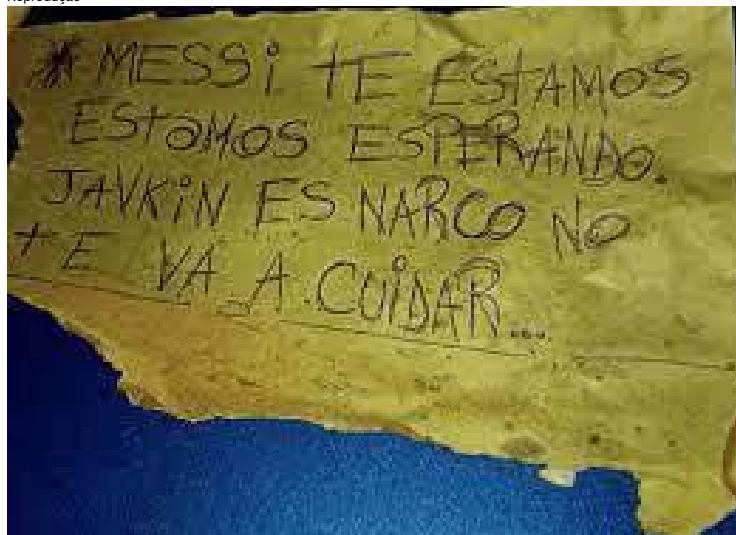 Reprodução
* MESSI TE ESTAMOS
ESTAMOS ESPERANDO.
JAVKIN ES NARCO NO
TE VA A CUIDAR...